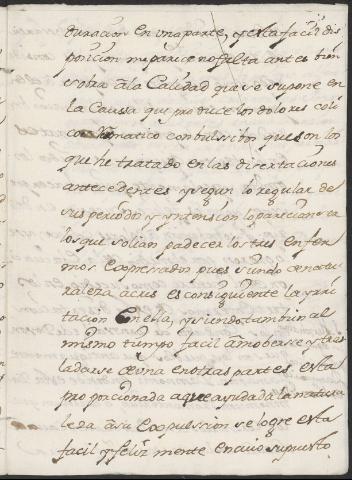 duracion en una parte, y esta facil dis
posicion me parece no falta antes bien
sobra a la Calidad que se supone en
la Caussa que produce los dolores coli
cos convulssibos que son los
que he tratado en las disertaciones
antecedentes y segun lo regular de
sus periodos y yntension lo parecian
los que solian padecer los tres enfer
mos expresados pues siendo de natu
raleza acre es consiguiente la yrri
tacion en ella, y siendo tambien al
mismo tiempo facil a moberse y tras
ladarse de una en otras partes esta
proporcionada a que ayudada la natura
leza a su expulssion se logre esta
facil y feliz mente en cuio supuesto